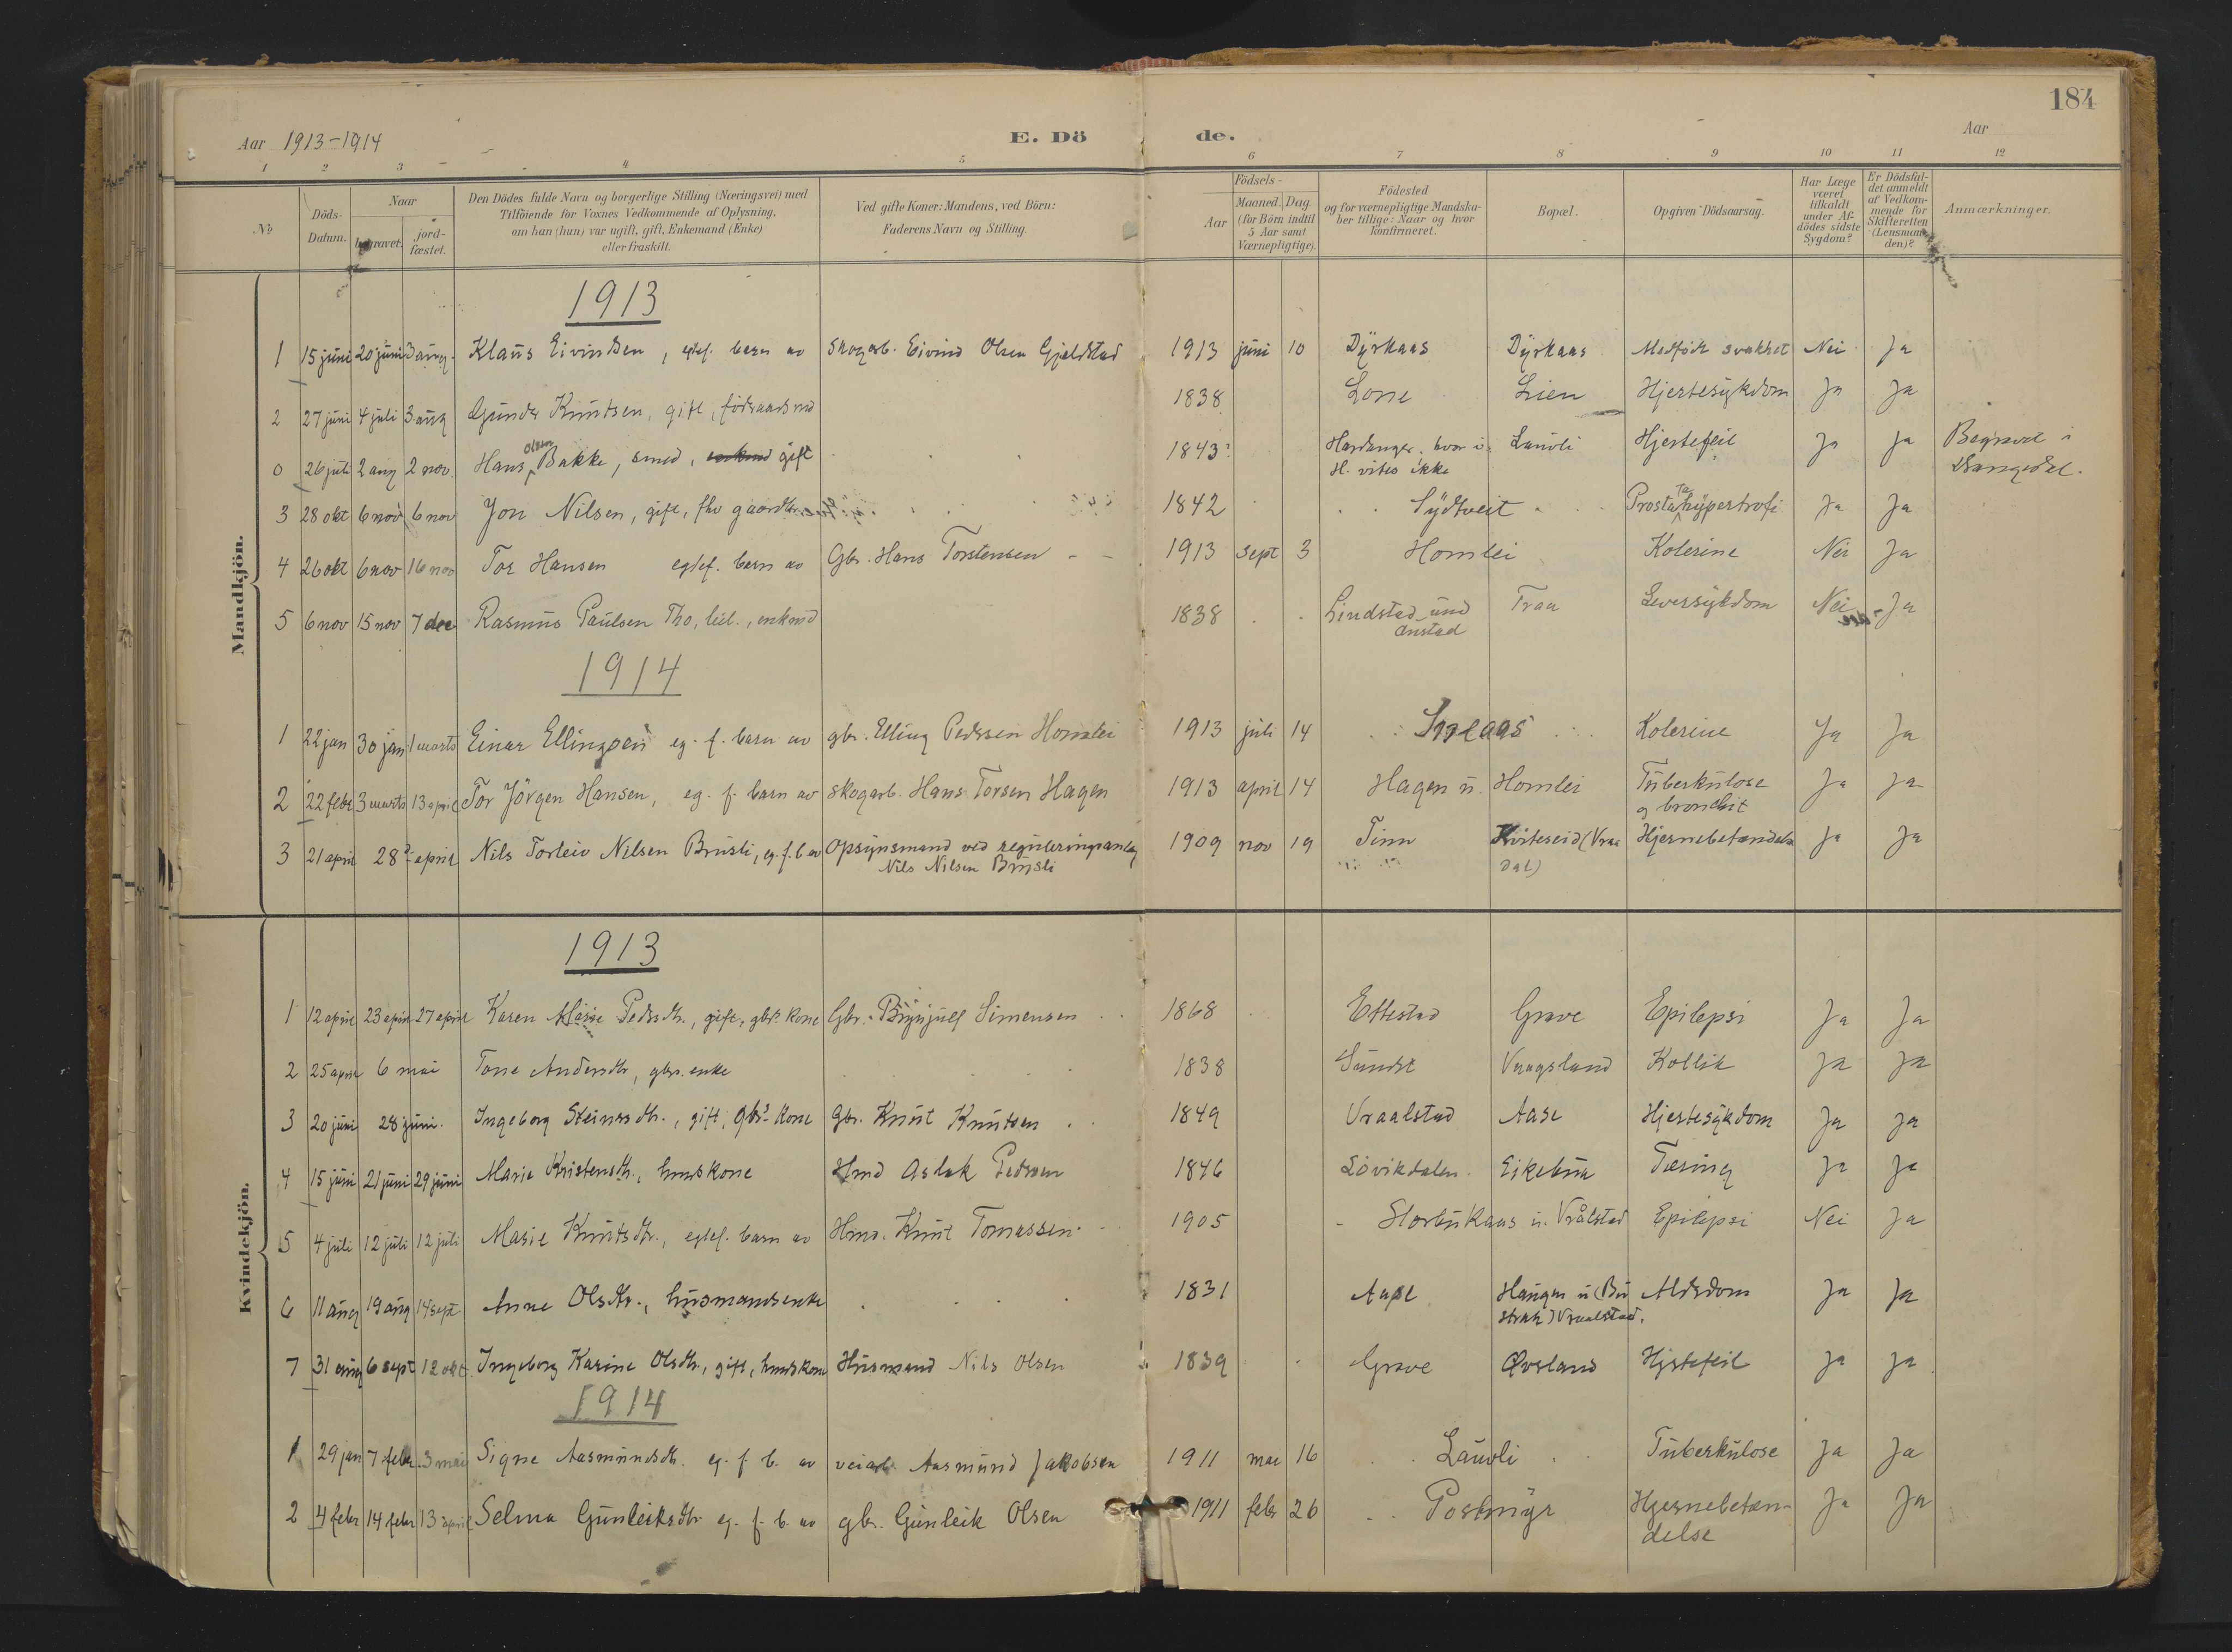 184
Aar 1913-1914 E. Dö de. Aar
1 2 3 4 5 6 7 8 9 10 11 12
No
Döds-Datum.
Naar
begravet. jord-fæstet.
Den Dödes fulde Navn og borgerlige Stilling (Næringsvei) med
Tilföiende for Voxnes Vedkommende af Oplysning,
om han (hun) var ugift, gift, Enkemand (Enke)
eller fraskilt.
Ved gifte Koner: Mandens, ved Börn:
Faderens Navn og Stilling.
Födsels-
Aar Maaned. Dag
(for Börn indtil
5 Aar samt
Værnepligtige).
Födested
og for værnepligtige Mandska-
ber tillige: Naar og hvor
konfirmeret.
Bopæl.
Opgiven Dödsaarsag.
Har Læge
været
tilkaldt
under Af-
dödes sidste
Sygdom?
Er Dödsfal-
det anmeldt
af Vedkom-
mende for
Skifteretten
(Lensman-
den)?
Anmærkninger.
Mandkjön.
1913
1 15 juni 20 juni 3 aug. Klaus Eivindsen, egtef. barn av skogarb. Eivind Olsen Gjeldstad 1913 juni 10 Dyrkaas Dyrkaas Medfödt svakhet Nei Ja
2 27 juni 4 juli 3 aug Gunder Knutsen, gift, föderaadsmd 1838 Lone Lien Hjertesykdom Ja Ja
0 26 juli 2 aug 2 nov. Hans Olsen Bakke, smed, enkmd gift 1843? Hardanger. hvor i H. vites ikke Lauvli Hjertefeil Ja Ja Begravet i Drangedal.
3 28 okt 6 nov 6 nov Jon Nilsen, gift, fhv gaardbr. 1842 Sydtveit Prostatahypertrofi Ja Ja
4 26 okt 6 nov 16 nov Tor Hansen egtef. barn av Gbr. Hans Torstensen 1913 sept 3 Homlei Kolerine Nei Ja
5 6 nov 15 nov 7 dec Rasmus Paulsen Tho, leil., enkmd 1838 Lindstad und Anstad Traa Leversykdom Nei Ja
1914
1 22 jan 30 jan 1 marts Einar Ellingsen eg. f. barn av gbr. Elling Pedersen Homlei 1913 juli 14 Kolerine Ja Ja
2 22 febr 3 marts 13 april Tor Jörgen Hansen, eg. f. barn av skogarb. Hans Torsen Hagen 1913 april 14 Hagen u. Homlei Tuberkulose og bronchit Ja Ja
3 21 april 28 april Nils Torleiv Nilsen Brusli, eg. f. b av opsynsmand ved reguleringsanleg Nils Nilsen Brusli 1909 nov 19 Tinn Kviteseid (Vraadal) Hjernebetændelse Ja Ja
Kvindekjön.
1913
1 12 april 23 april 27 april Karen Marie Pedersdtr., gift, gbrs. kone Gbr. Brynjulf Simensen 1868 Ettestad Grave Epilepsi Ja Ja
2 25 april 6 mai Tone Andersdtr, gbr. enke 1838 Sundet Vaagsland Kollik Ja Ja
3 20 juni 28 juni. Ingeborg Steinersdtr., gift, gbrs kone Gbr. Knut Knutsen 1849 Vraalstad Aase Hjertesykdom Ja Ja
4 15 juni 21 juni 29 juni Marie Kristensdtr., hmdskone Hmd Aslak Pedersen 1846 Lövikdalen Eikebua Tæring Ja Ja
5 4 juli 12 juli 12 juli Marie Knutsdtr., egtef. barn av Hmd. Knut Tomassen 1905 Storbukaas u. Vrålstad Epilepsi Nei Ja
6 11 aug 19 aug 14 sept Anne Olsdtr., husmandsenke 1831 Aase Haugen u (Bustrak) Vraalstad. Aldersdom Ja Ja
7 31 aug 6 sept 12 okt. Ingeborg Karine Olsdtr., gift, hmdskone Husmand Nils Olsen 1839 Grave Øvsland Hjertefeil Ja Ja
1914
1 29 jan 7 febr. 3 mai Signe Aasmundsdtr. eg. f. b. av veiarb Aasmund Jakobsen 1911 mai 16 Lauvli Tuberkulose Ja Ja
2 4 febr 14 febr 13 april Selma Gunleiksdtr. eg. f. b. av gbr. Gunleik Olsen 1911 febr 26 Postmyr Hjernebetændelse Ja Ja